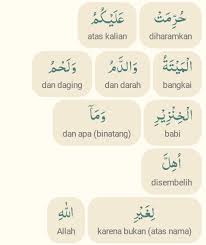 حُرِّمَتْ عَلَيْكُمُ
diharamkan atas kalian
الْمَيْتَةُ وَالدَّمُ وَلَحْمُ
bangkai dan darah dan daging
الْخِنْزِيْرِ وَمَآ
babi dan apa (binatang)
اُهِلَّ
disembelih
لِغَيْرِ اللّٰهِ
karena bukan (atas nama) Allah